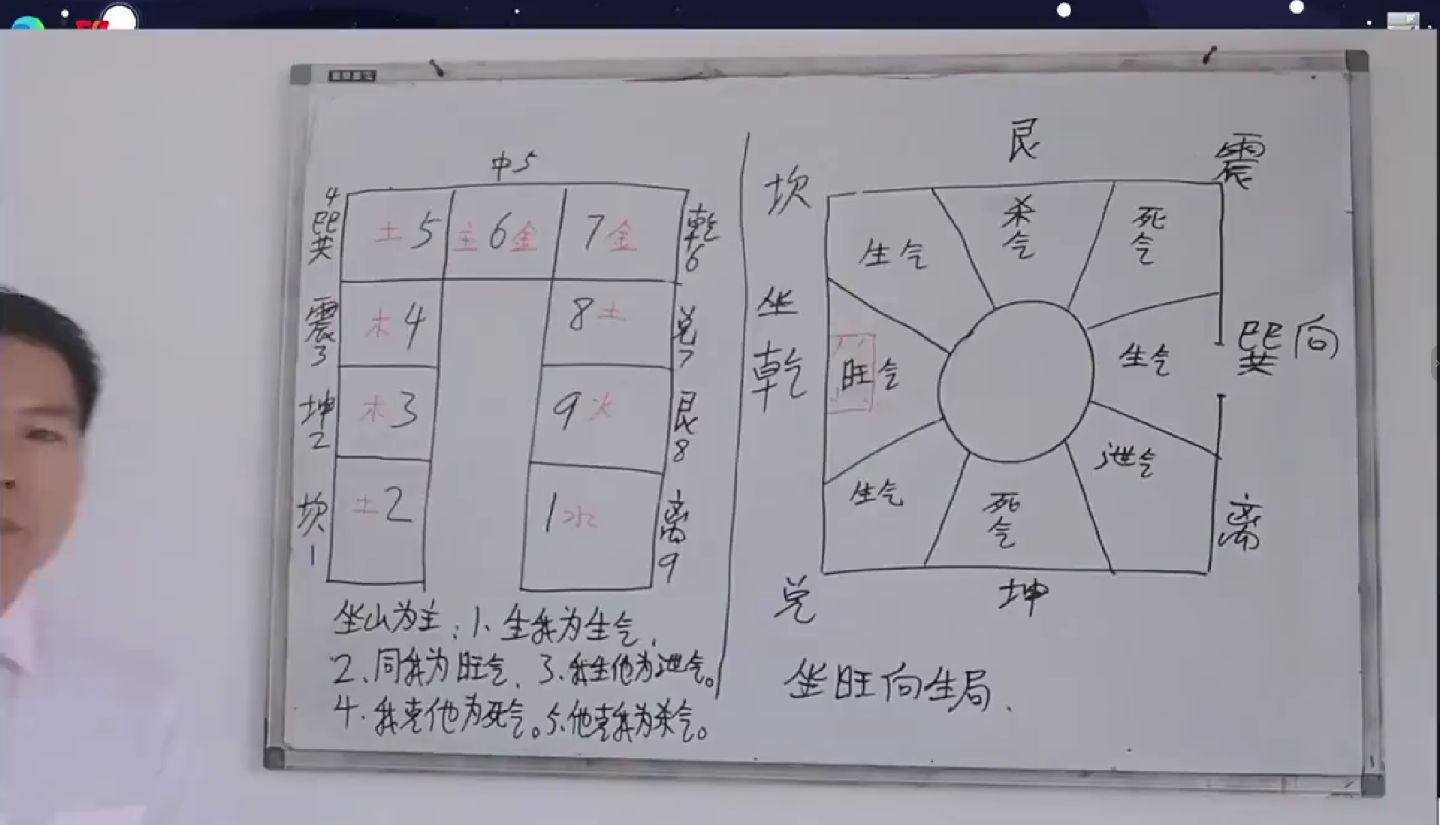 中5
巽4
土5
主6金
7金
乾6
震3
木4
8土
兑7
坤2
木3
9火
艮8
坎1
土2
1水
离9
坐山为主：1、生我为生气、
2、同我为旺气、3、我生他为泄气。
4、我克他为死气。5、他克我为杀气。
坎
艮
震
生气
杀气
死气
坐乾
旺气
生气
巽向
生气
死气
泄气
离
兑
坤
坐旺向生局、